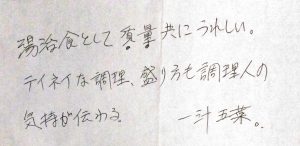 湯治食として質量共にうれしい。
テイネイな調理、盛り方も調理人の
気持が伝わる　　一汁五菜。